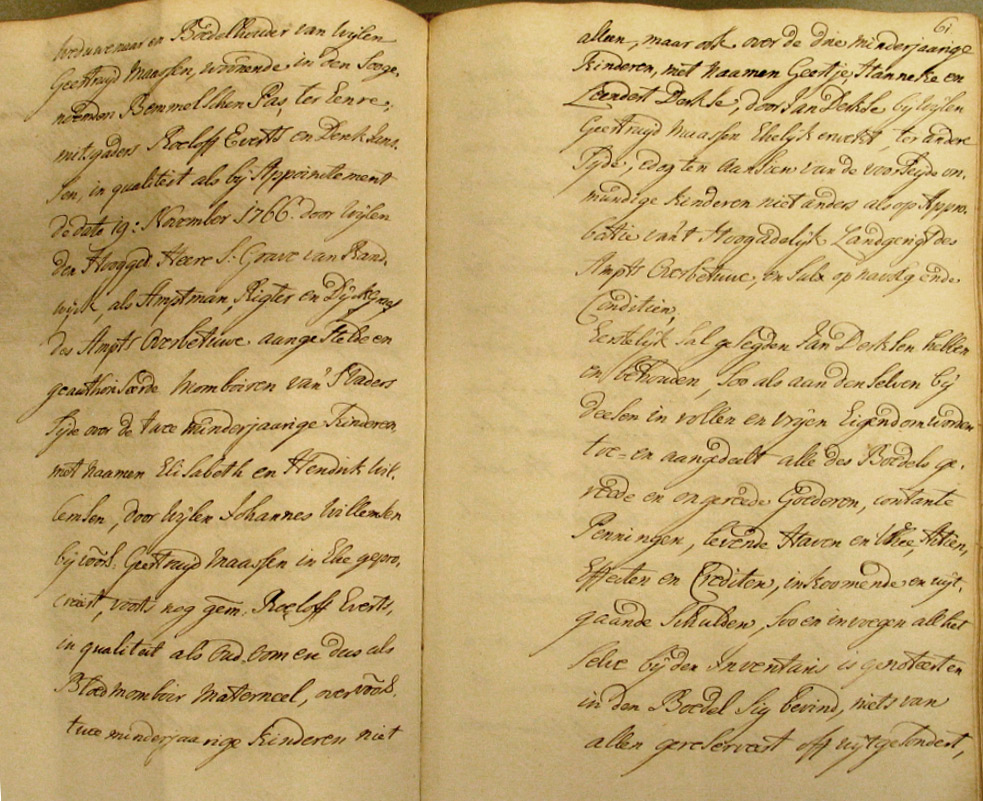 weduwenaar en Boedelhouder van wijlen
Geertruijd Maassen, woonende in den Sooge,
noemden Bemmelschen Pas, ter Eenre;
mitsgaders Roeloff Everts, en Derk Jans,
sen, in qualiteit als bij Appoinctement
de dato 19: November 1766 door wijlen
den Hooggeb. Heere S. Grave van Rand,
wijck, als Amptman, Rigter en Dijckgraaf
des Ampts Overbetuwe aangestelde en
geauthoriseerde momboiren van 's Vaders
sijde over de twee minderjaarige Kinderen
met naamen Elisabeth en Hendrik Wil,
lemsen, door wijlen Johannes Willemsen
bij voors. Geertruijd Maassen in Ehe gepro,
creëert, voorts nog gem. Roeloff Everts,
in qualiteit als Oud-oom en dus als
Bloedmomboir materneel, over voors.
twee minderjaarige Kinderen niet
61
alleen, maar ook over de drie minderjaarige
Kinderen, met naamen Geertje, Hanneke en
Leendert Derkse, door Jan Derkse bij wijlen
Geertruijd Maassen Ehelijk erwekt, ter andere
sijde; edog ten aansien van de voorseijde on,
mundige Kinderen niet anders als op Appro,
batie van 't Hoogadelijk Landgerigt des
Ampts Overbetuwe, en sulx op navolgende
Conditien,
Eerstelijk sal gesegden Jan Derksen hebben
en behouden, soo als aan denselven bij
deesen in vollen en vrijen Eigendom worden
toe- en aangedeelt alle des Boedels ge,
reede en ongereede Goederen, contante
Penningen, levende Haven en Vhee, Actien,
Effecten en Crediten, inkoomende en uijt,
gaande Schulden, soo en invoegen all het
selve bij den Inventaris is genoteert en
in den Boedel sig bevind, niets van
allen gereserveert off uijtgesondert,